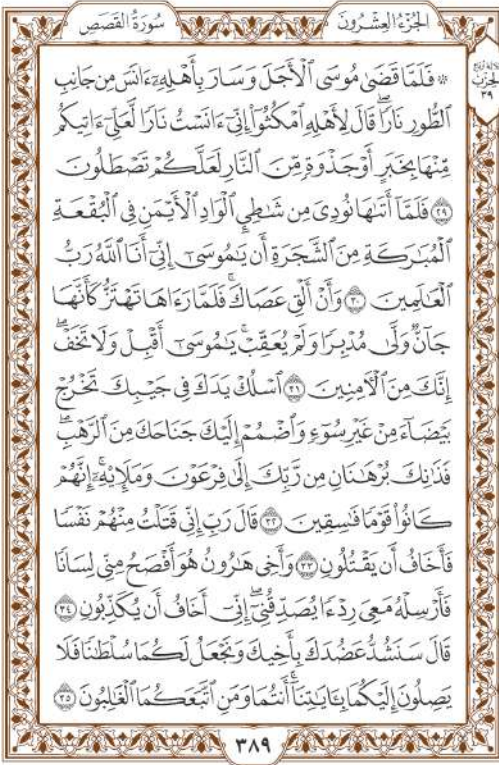 سُورَةُ القَصَصِ
الجُزْءُ العِشْرُونَ
۞ فَلَمَّا قَضَىٰ مُوسَى ٱلْأَجَلَ وَسَارَ بِأَهْلِهِۦٓ ءَانَسَ مِن جَانِبِ
ٱلطُّورِ نَارًاۖ قَالَ لِأَهْلِهِ ٱمْكُثُوٓا۟ إِنِّىٓ ءَانَسْتُ نَارًا لَّعَلِّىٓ ءَاتِيكُم
مِّنْهَا بِخَبَرٍ أَوْ جَذْوَةٍ مِّنَ ٱلنَّارِ لَعَلَّكُمْ تَصْطَلُونَ
٢٩ فَلَمَّآ أَتَىٰهَا نُودِىَ مِن شَٰطِئِ ٱلْوَادِ ٱلْأَيْمَنِ فِى ٱلْبُقْعَةِ
ٱلْمُبَٰرَكَةِ مِنَ ٱلشَّجَرَةِ أَن يَٰمُوسَىٰٓ إِنِّىٓ أَنَا ٱللَّهُ رَبُّ
ٱلْعَٰلَمِينَ ٣٠ وَأَنْ أَلْقِ عَصَاكَۖ فَلَمَّا رَءَاهَا تَهْتَزُّ كَأَنَّهَا
جَآنٌّ وَلَّىٰ مُدْبِرًا وَلَمْ يُعَقِّبْۚ يَٰمُوسَىٰٓ أَقْبِلْ وَلَا تَخَفْۖ
إِنَّكَ مِنَ ٱلْءَامِنِينَ ٣١ ٱسْلُكْ يَدَكَ فِى جَيْبِكَ تَخْرُجْ
بَيْضَآءَ مِنْ غَيْرِ سُوٓءٍ وَٱضْمُمْ إِلَيْكَ جَنَاحَكَ مِنَ ٱلرَّهْبِۖ
فَذَٰنِكَ بُرْهَٰنَانِ مِن رَّبِّكَ إِلَىٰ فِرْعَوْنَ وَمَلَإِي۟هِۦٓۚ إِنَّهُمْ
كَانُوا۟ قَوْمًا فَٰسِقِينَ ٣٢ قَالَ رَبِّ إِنِّى قَتَلْتُ مِنْهُمْ نَفْسًا
فَأَخَافُ أَن يَقْتُلُونِ ٣٣ وَأَخِى هَٰرُونُ هُوَ أَفْصَحُ مِنِّى لِسَانًا
فَأَرْسِلْهُ مَعِىَ رِدْءًا يُصَدِّقُنِىٓۖ إِنِّىٓ أَخَافُ أَن يُكَذِّبُونِ ٣٤
قَالَ سَنَشُدُّ عَضُدَكَ بِأَخِيكَ وَنَجْعَلُ لَكُمَا سُلْطَٰنًا فَلَا
يَصِلُونَ إِلَيْكُمَاۚ بِـَٔايَٰتِنَآ أَنتُمَا وَمَنِ ٱتَّبَعَكُمَا ٱلْغَٰلِبُونَ ٣٥
٣٨٩